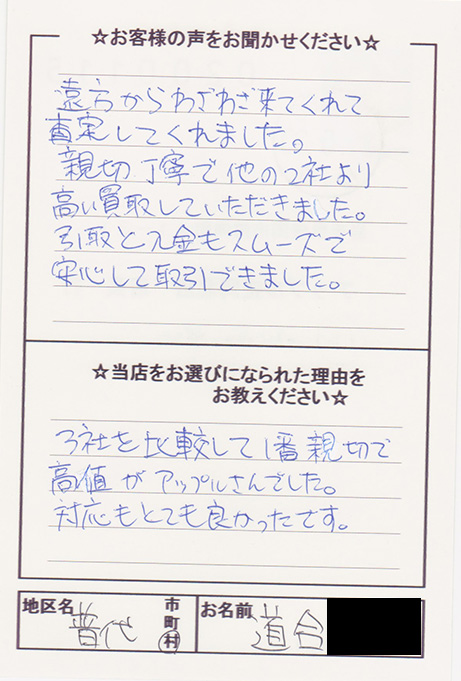 ☆お客様の声をお聞かせください☆
遠方からわざわざ来てくれて
査定してくれました。
親切丁寧で他の2社より
高い買取していただきました。
引取と入金もスムーズで
安心して取引できました。
☆当店をお選びになられた理由を
お教えください☆
3社を比較して1番親切で
高値がアップルさんでした。
対応もとても良かったです。
地区名 普代 市町村 お名前 道合